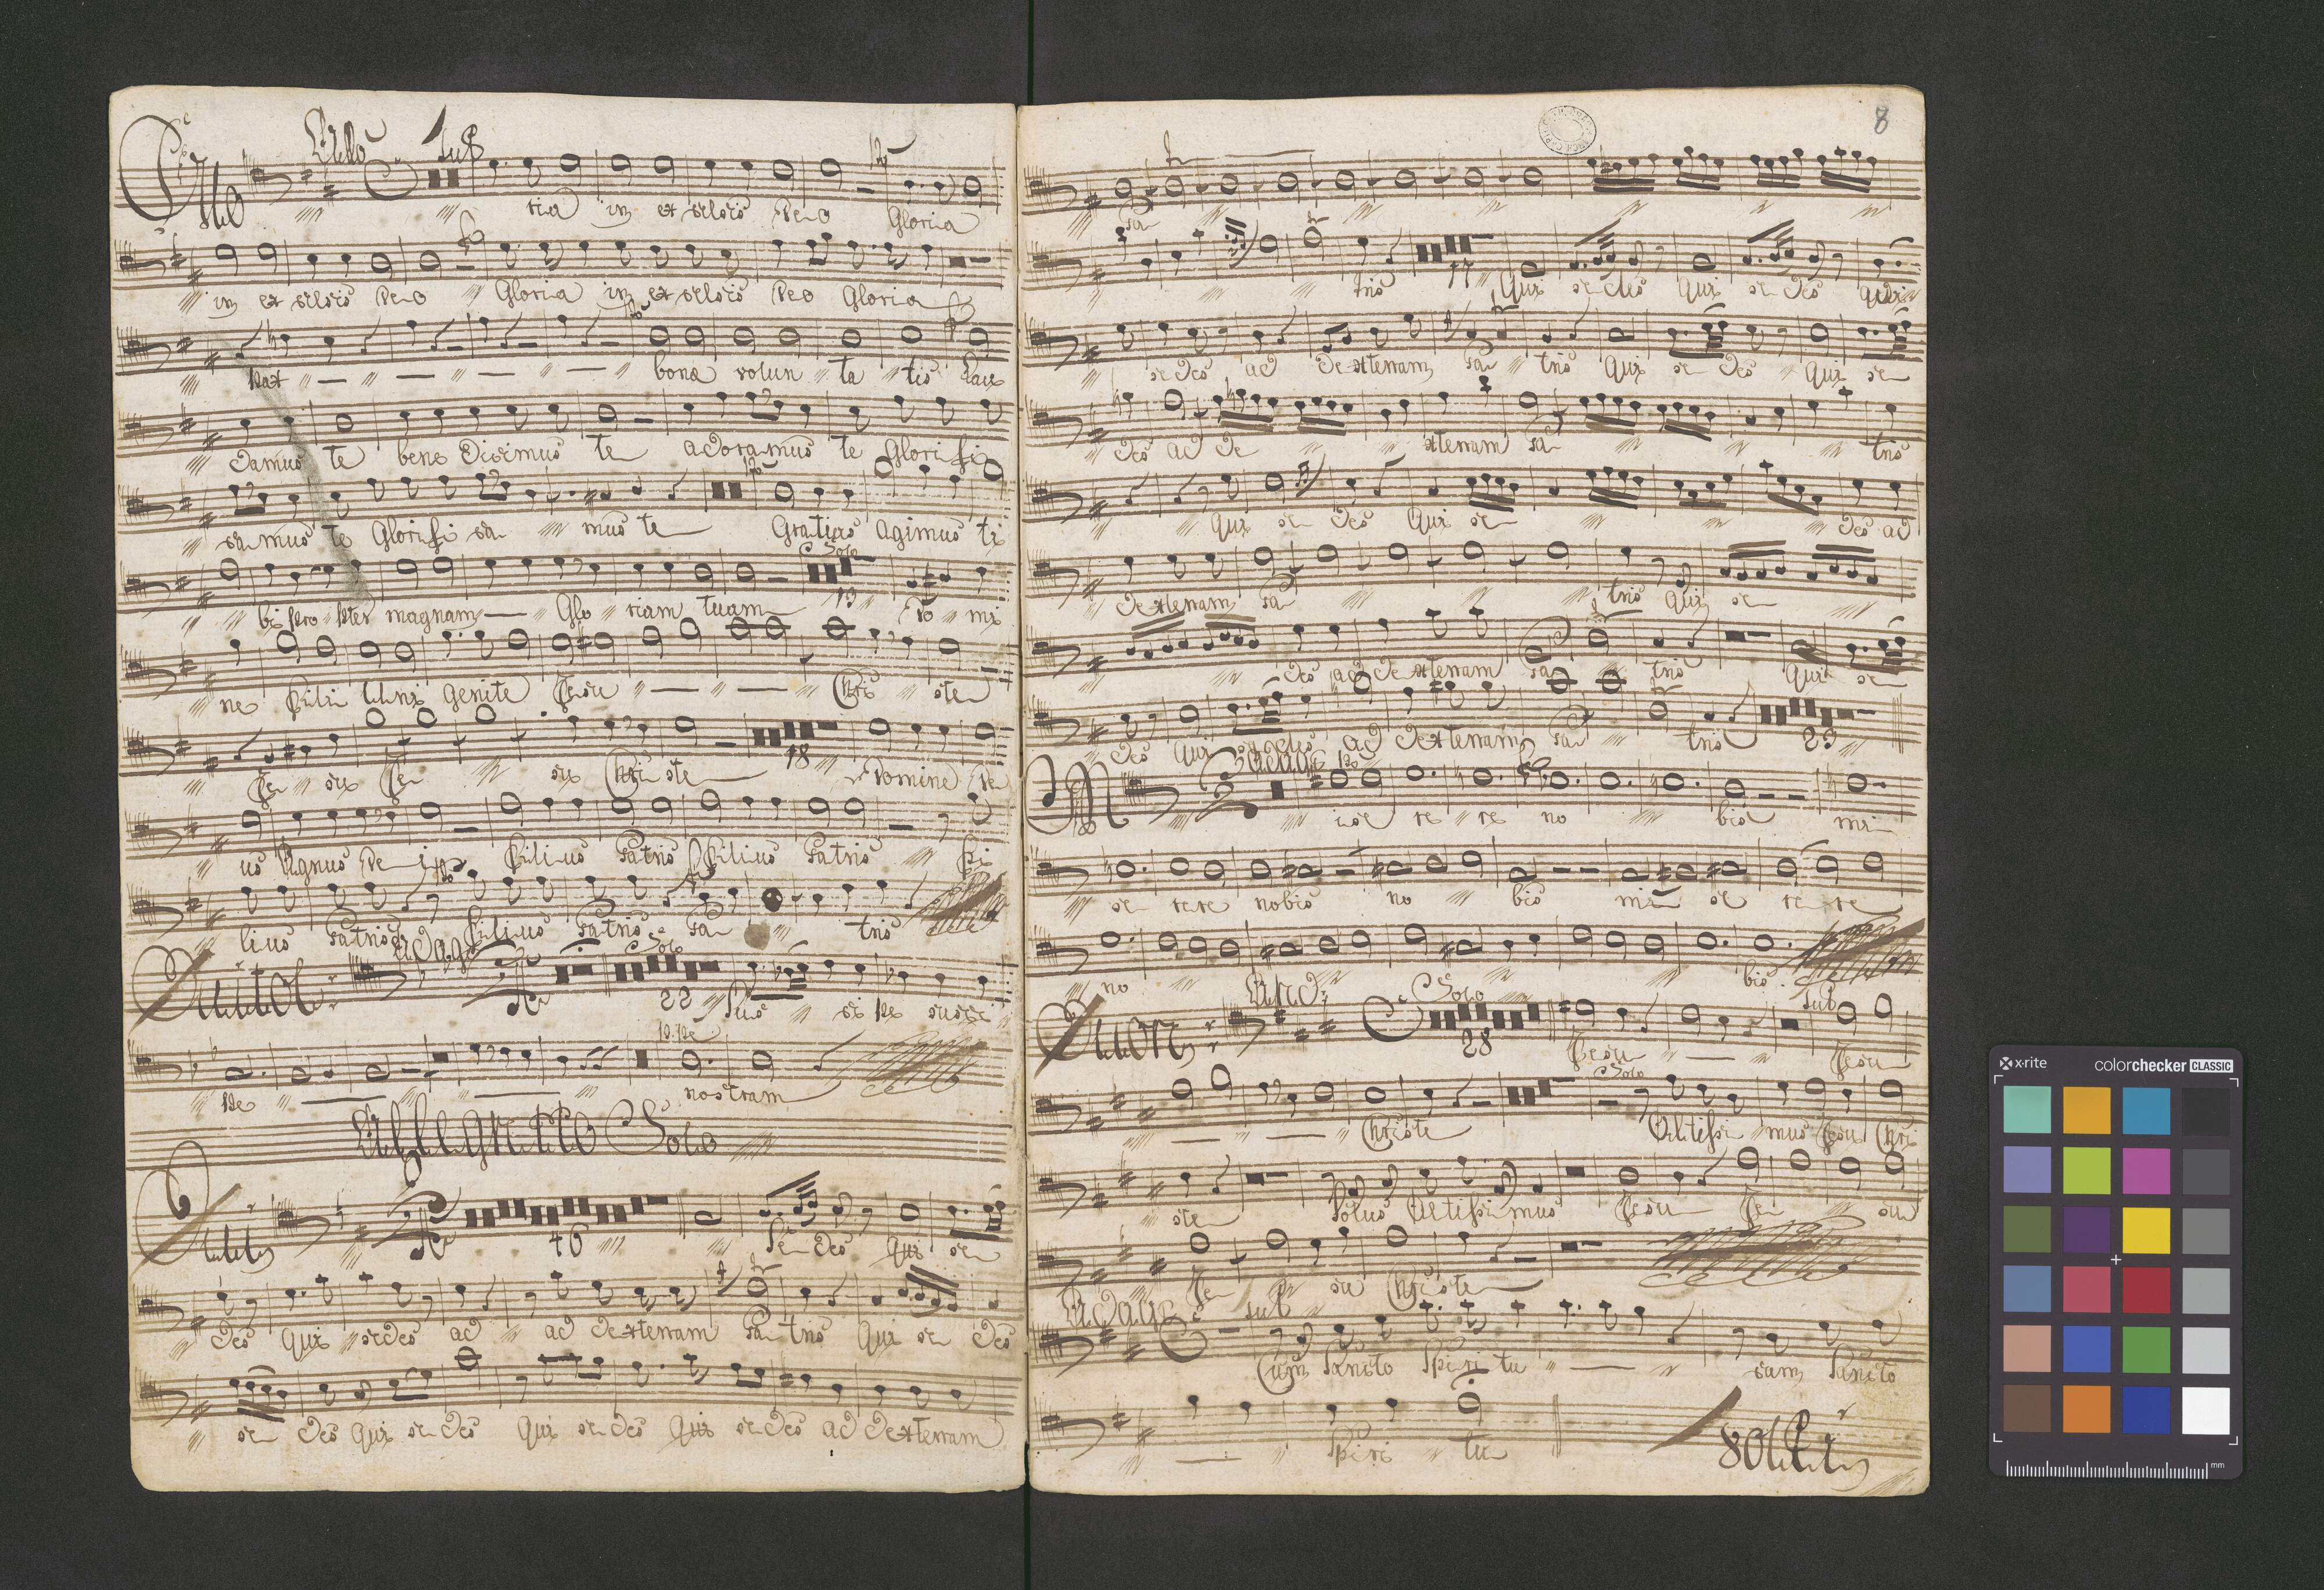 Allo Tutti
Glo ria in excelsis Deo Gloria
in excelsis Deo Gloria in excelsis Deo Gloria
Pax bonæ volun ta tis Lau
damus te bene dicimus te adoramus te Glorifi
camus te Glorifi ca mus te Gratias agimus ti
Solo
bi propter magnam Glo riam tuam 13 Do mi
ne Fili Uni genite Jesu Chri ste
Je su Je su Chri ste 18 Domine De
us Agnus De i Filius Patris Filius Patris Fi
lius Patris Filius Patris Pa tris
Adag
Solo
Qui tol 22 Sus ci pe susci
pe nostram
Allegretto Solo
Qui 46 Se des qui se
des qui sedes ad ad dexteram Pa tris qui se des
se des qui se des qui se des qui se des ad dexteram
8
Pa
tris 17 Qui se des qui se des qui
se des ad dexteram Pa tris qui se des qui se
des ad de xteram Pa tris
qui se des qui se des ad
dexteram Pa tris qui se
des ad dexteram Pa tris qui se
des qui se des ad dexteram Pa tris 23
Adag
Mi se re re no bis mi
se rere nobis no bis mi se re re
no bis
And
Solo
Tutti
Quon 28 Jesu Jesu
Solo
Christe Altissi mus Jesu Chri
ste Solus Altissimus Jesu Je su
Je su Christe
Adag tutti
Cum Sancto Spiri tu cum Sancto
Spiri tu Volti